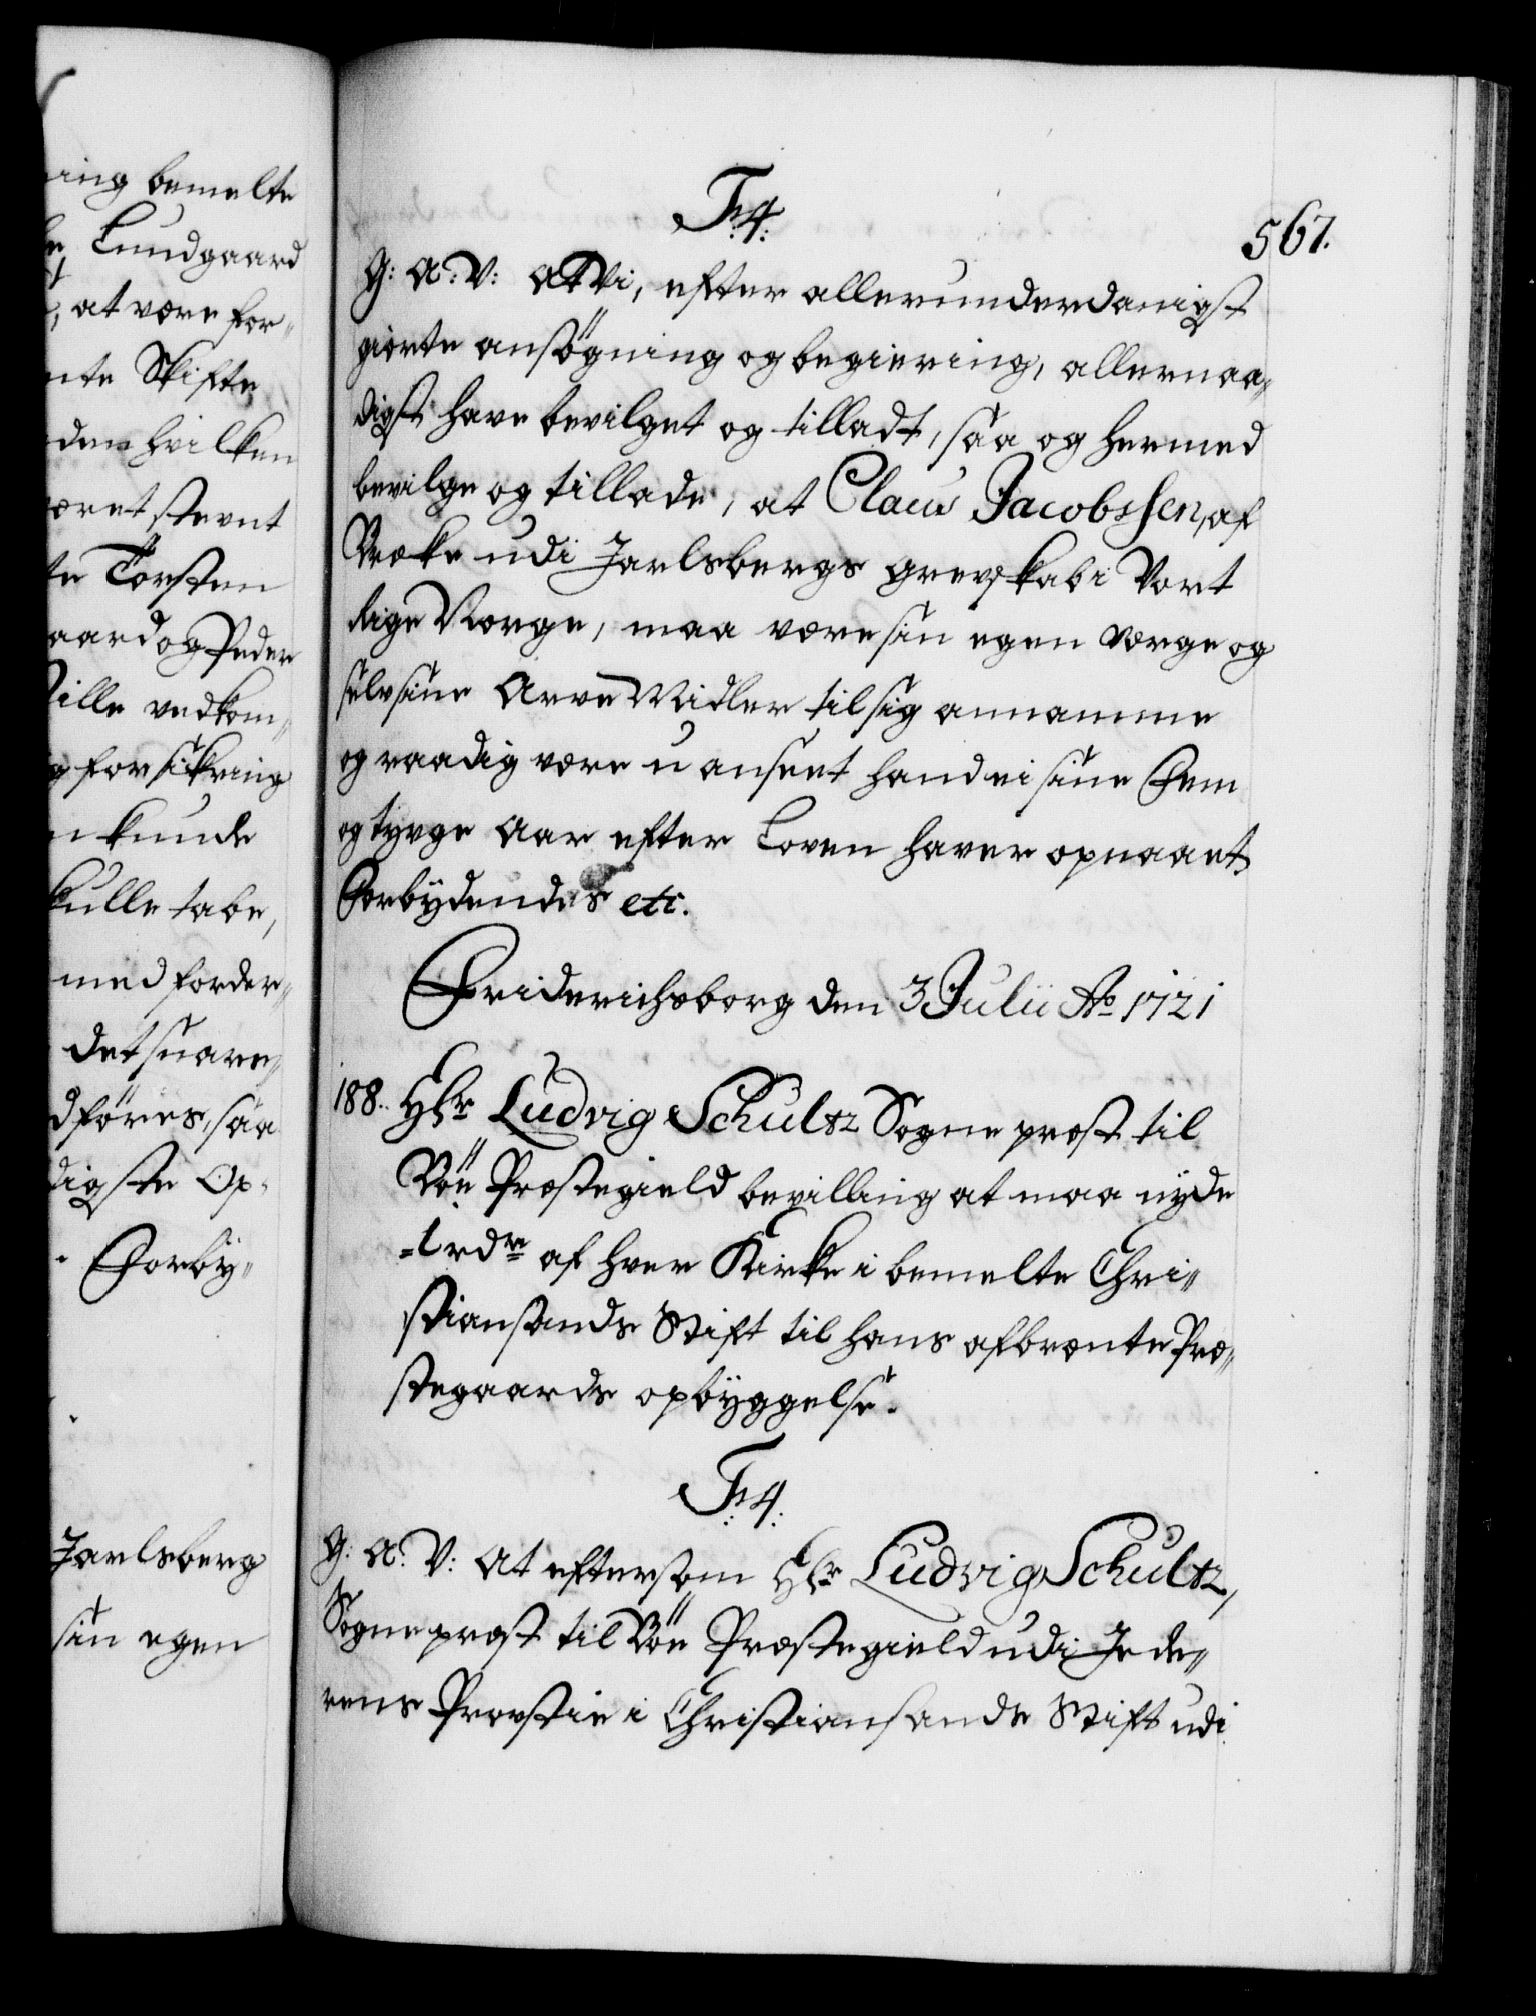 ning bemelte
Lundgaard
, at være for„
nte Skifte
den hvilken
været stevnt
te Torsten
aard og Peder
ille vedkom„
g forsikring
n kunde
kulle tabe,
med forder„
det svare„
dföres, saa
digste Op„
Forby„
Jarlsberg
sin egen
567.
F: 4:
G: A: V: At Vi, efter allerunderdanigst
giorte ansögning og begiering, allernaa„
digst have bevilget og tilladt, saa og hermed
bevilge og tillade, at Claus Jacobssen, af
Ræke udi Jarlsbergs grevskab i Vort
Rige Norge, maa være sin egen Værge og
selv sine Arve Midler til sig annamme
og raadig være uanseet hand ei sine Fem
og tyvge Aar efter Loven haver opnaaet,
Forbydendes etc.
Friderichsborg den 3 Julii Ao 1721
188. Hr Ludvig Schultz Sogneprest til
Böe Præstegield bevilling at maa nyde
1 rdr af hver Kirke i bemelte Chri„
stiansands Stift til hans afbrænte Præ„
stegaards opbyggelse.
F: 4:
G: A: V: At eftersom Hr Ludvig Schultz,
Sogneprest til Böe Præstegield udi Jede„
rens Provstie i Christiansands Stift udi